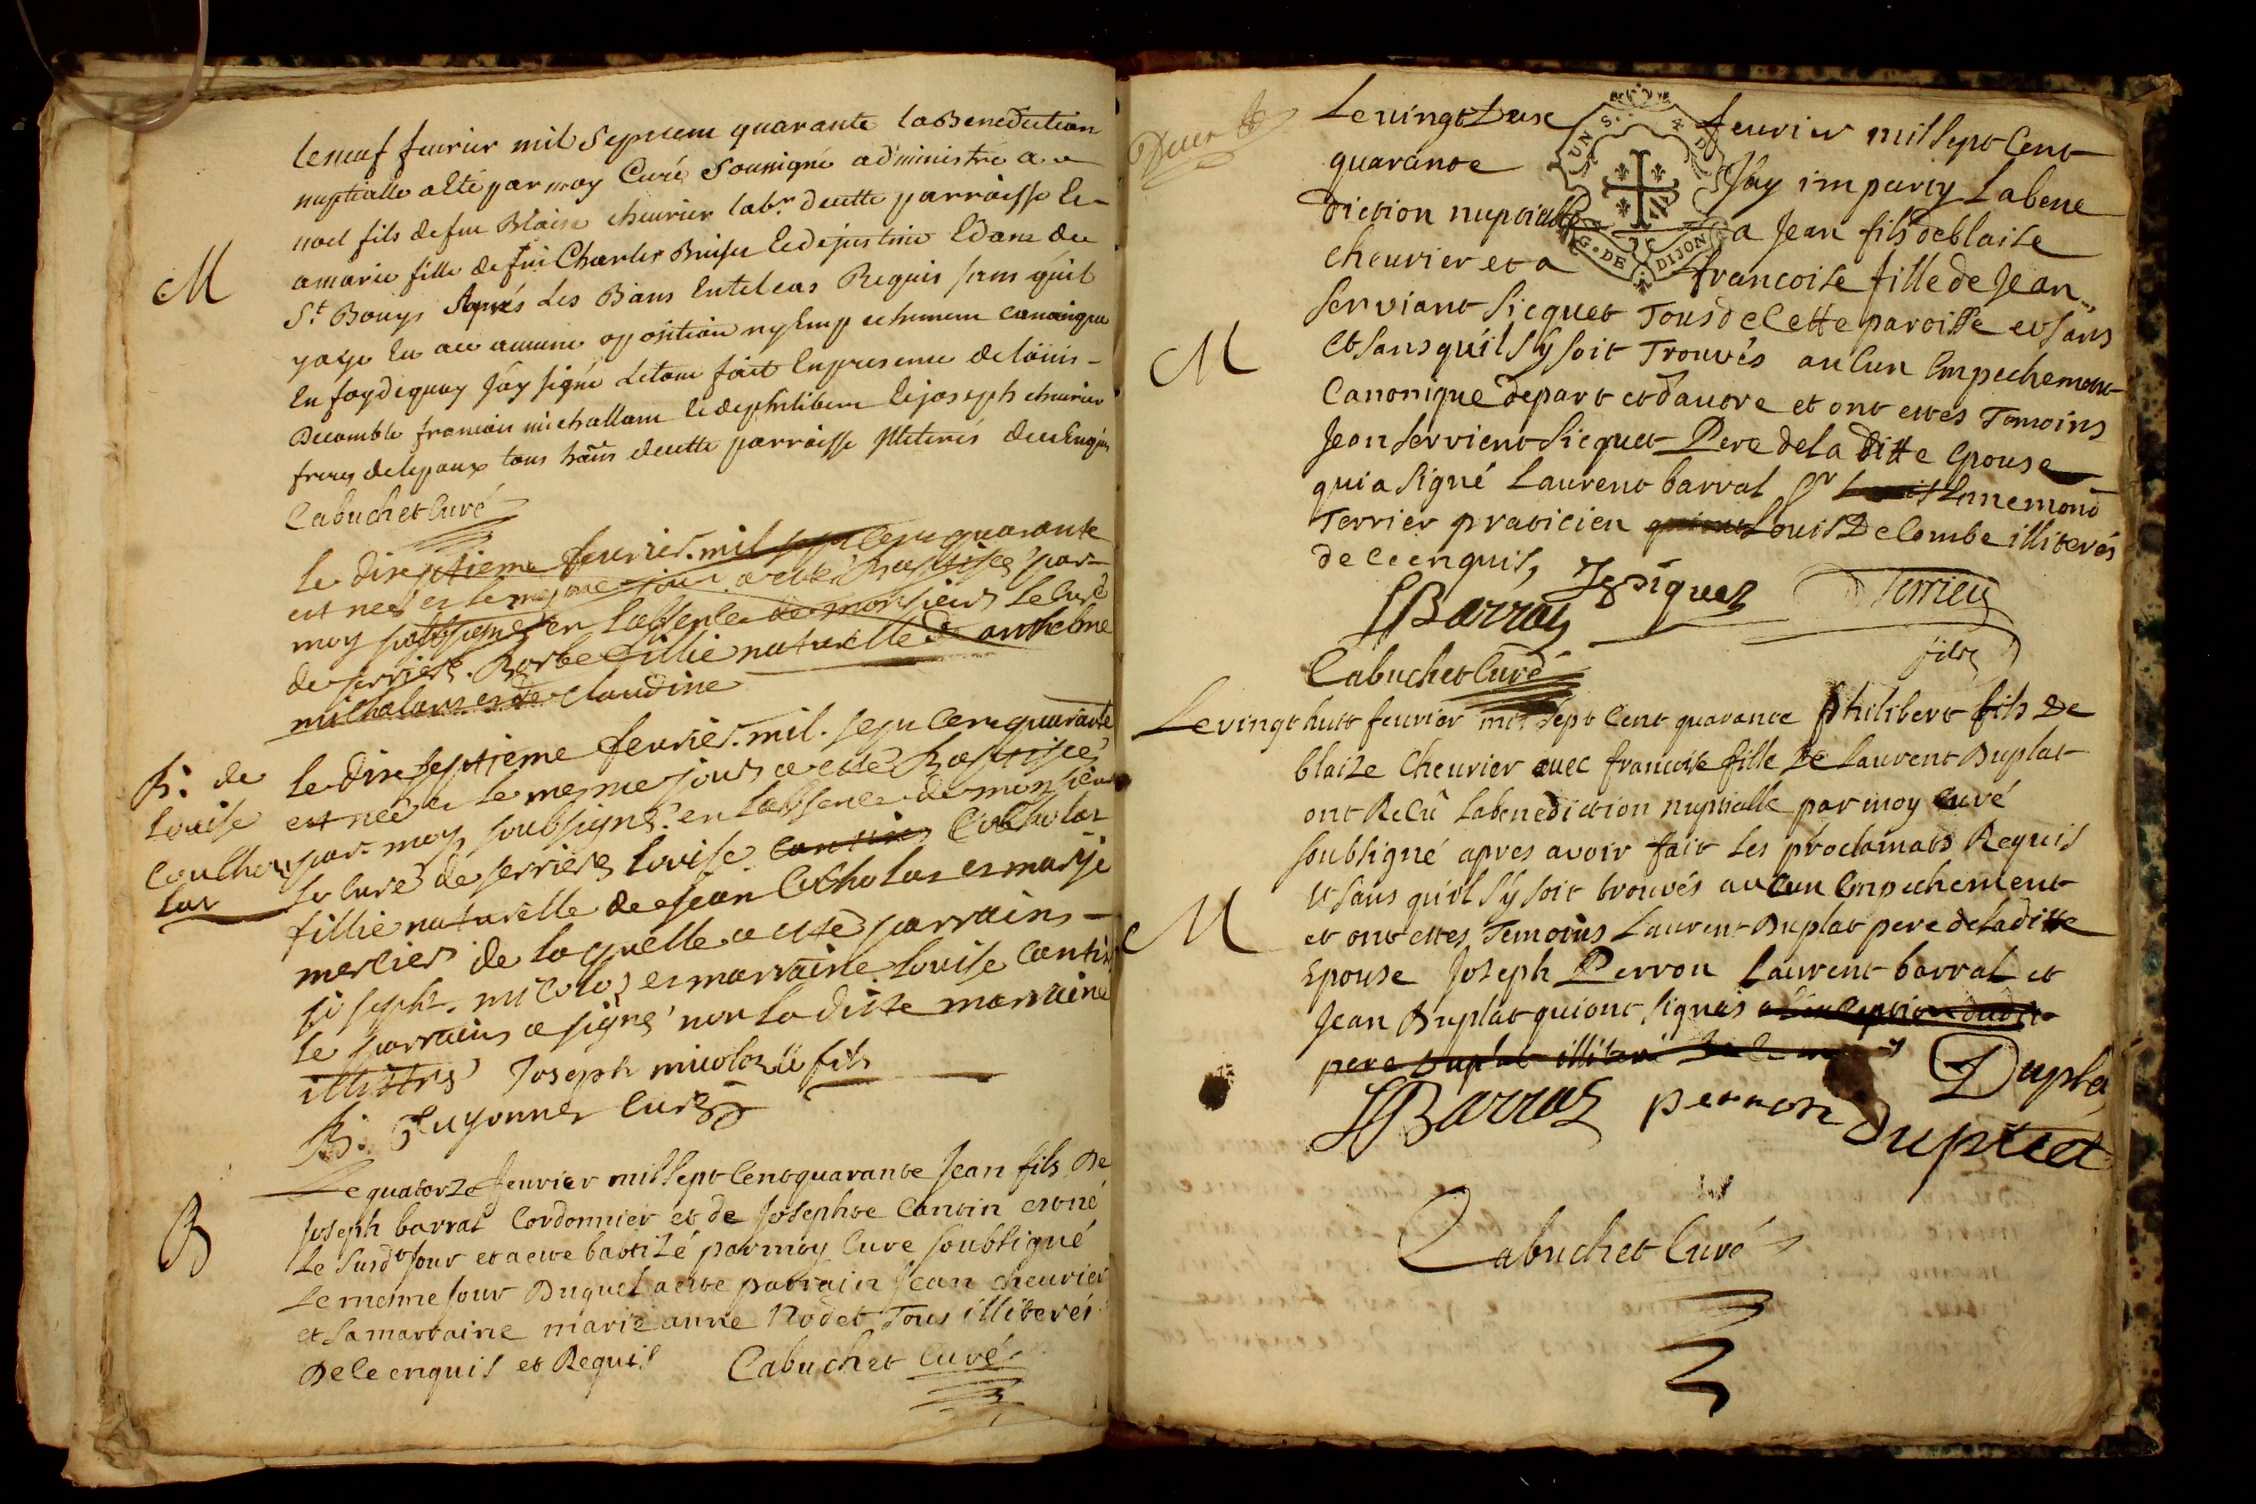 M
le neuf fevrier mil Sept cent quarante la Benediction
nuptialle a Eté par moy Curé Soussigné administré a
noel fils de feu Blaise cheurier lab.r de cette parroisse Et
a marie fille de feu Charles Et de justine
S.t Bouys Aprés Les Bans En tel cas Requis sans qu'il
y aye Eu aucune oposition ny Empechement canonique
En foy de quoy J'ay signé Letout fait En presence de loüis
Decomble francois michallam Et de philibem Et joseph cheurier
freres de lepoux tous de cette parroisse illiterés de ce Enquis
Cabuchet Curé
le dixseptieme feurier. mil sept cens quarante
est neé et le mesme jour a esté Baptisee par
moy soubsigné en Labsence de monsieur le curé
de serriere. Barbe fillie naturelle de anthelme
michalans et de claudine
B. de
Louise
Coulho
lar
le dix septieme feurier. mil. sept cens quarante
est neé et le mesme jour a esté Baptisée
par moy soubsigné en Labsence de monsieur
le curé de serriere Louise cantin Coctholar
fillie naturelle de jean Cotholar et marye
mercier de laquelle a esté parrains
joseph. micoloz et marraine Louise Cantin
le parrains a signé non La dite marraine
illistré Joseph micoloz fils
B. Guyonnet curé
B
Le quatorze feurier mil sept Cent quarante Jean fils De
Joseph barral Cordonnier et de Josephte Cantin est né
Le Susd.t jour et a ette batizé par moy Curé soubsigné
Le meme jour Duquel a ette parrain Jean cheurier
et sa marraine marie anne Nodet Tous illiterés
De ce enquis et Requis Cabuchet Curé
Le vingt Deux feurier mil sept Cent
quarante J'ay imparty La bene
diction nuptialle a Jean fils de blaise
Cheurier et a francoise fille de Jean
Serviant Sicquet Tous de Cette paroisse et sans
Et sans quil sy soit Trouvés aucun Empechement
M
Canonique de part et dautre et ont ettes Temoins
Jean Servient Sicquet Pere de la Ditte Epouse
qui a signé Laurent barral S.r Louis Ennemond
Terrier praticien qui ont Louis De Combe illiterés
de ce enquis,
UNS. D.
G. DE DIJON
JSsiquet
LBarral
Terrier
fils
Cabuchet Curé
Le vingt huit feurier mil sept Cent quarante philibert fils De
blaize Cheurier avec francoise fille De Laurent Duplat
ont Recû La benediction nuptialle par moy curé
soubsigné apres avoir fait Les proclamats Requis
Et sans quil sy soit trouvés aucun Empechement
M
et ont ettes Temoins Laurent Duplat pere de laditte
Epouse Joseph Perron Laurent barral et
Jean Duplat qui ont signés a l'exception dudit
pere Duplat illiteré
LBarral perron Dupla
Duplat
Cabuchet Curé